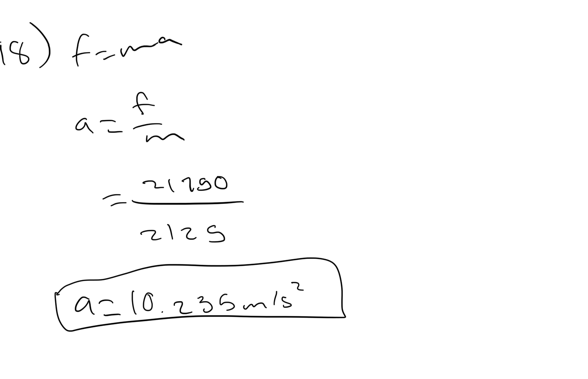 18) f=ma
a = f/m
= 21750/2125
a = 10.235 m/s²